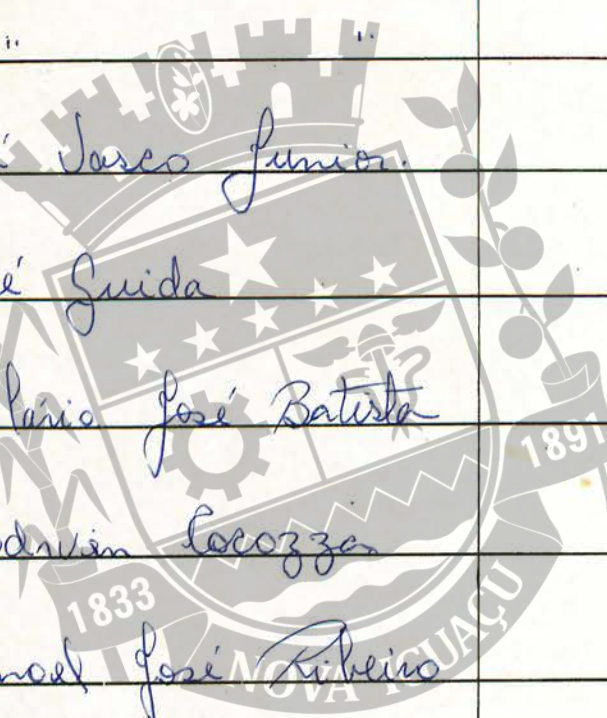 " "
é Vasco Junior.
é Guida
lário José Batista
dwin Cocozza
noel José Ribeiro
1891
1833
NOVA IGUAÇU